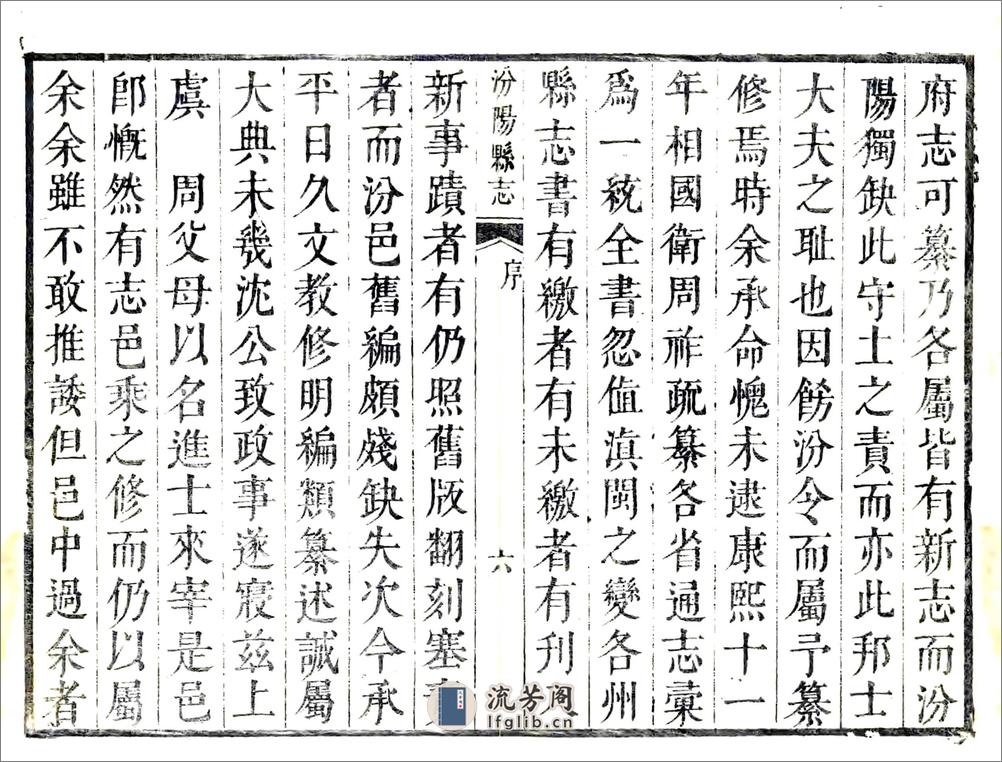 府志可纂乃各屬皆有新志而汾
陽獨缺此守土之責而亦此邦士
大夫之耻也因餝汾令而屬予纂
修焉時余承命愧未逮康熙十一
年相國衛周祚疏纂各省通志彙
爲一統全書忽値滇閩之變各州
縣志書有繳者有未繳者有刊
汾陽縣志
序
六
新事蹟者有仍照舊版翻刻塞
者而汾邑舊編頗殘缺失次今承
平日久文教修明編類纂述誠屬
大典未幾沈公致政事遂寢兹上
虞 周父母以名進士來宰是邑
卽慨然有志邑乘之修而仍以屬
余余雖不敢推諉但邑中過余者
流芳阁
lfglib.cn